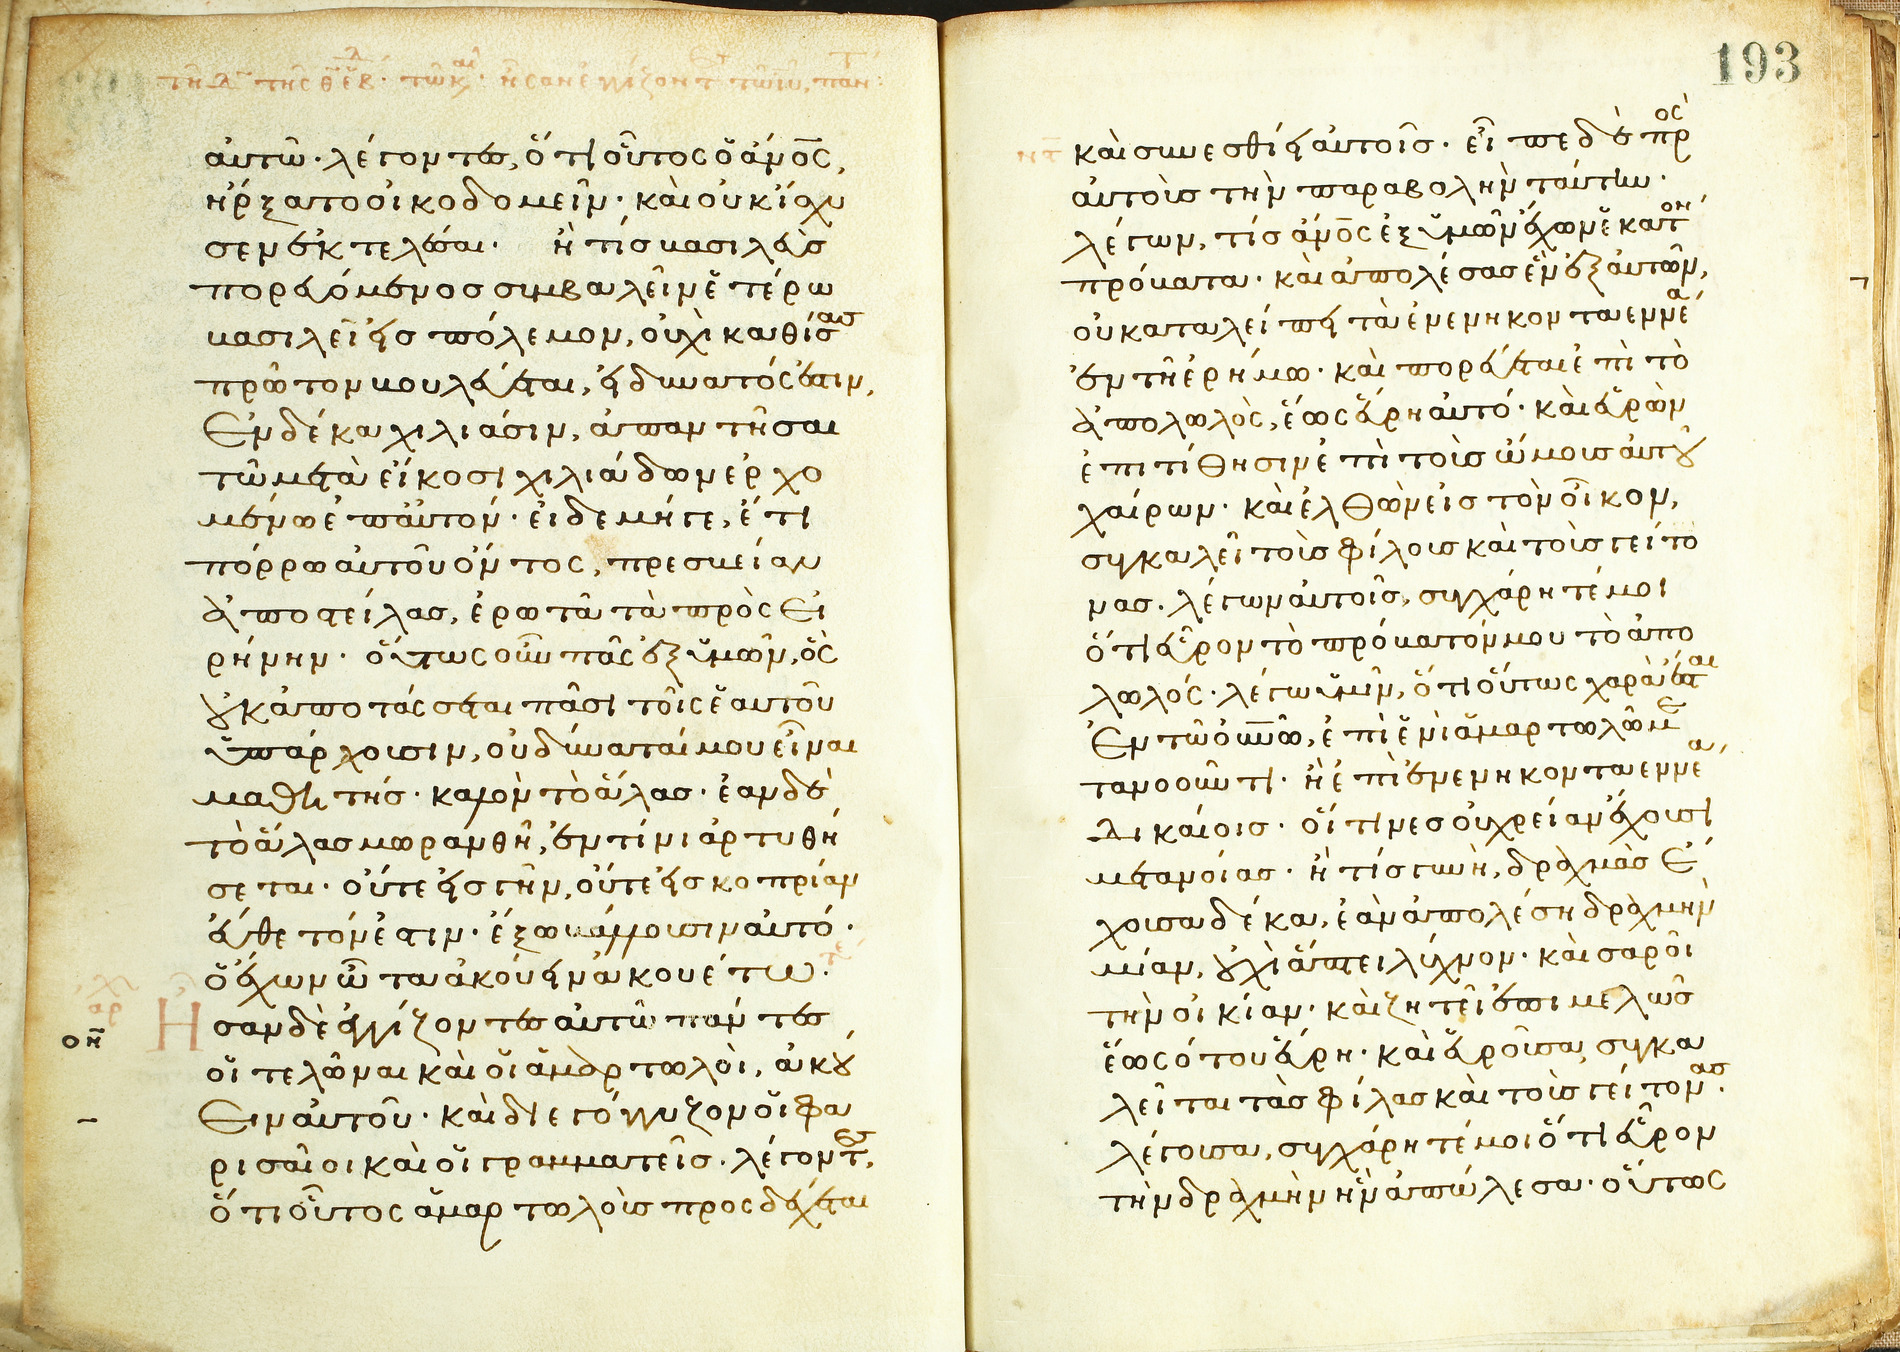 αὐτῶ· λέγοντες, ὅτι οὗτος ὁ ἄνος,
ἤρξατο οἰκοδομεῖν· καὶ οὐκ ἴσχυ
σεν ἐκτελέσαι· ἢ τίς βασιλεὺς
πορευόμενος συμβαλεῖν ἑτέρω
βασιλεῖ εἰς πόλεμον, οὐχὶ καθίσας
πρῶτον βουλεύεται, εἰ δυνατός ἐστιν,
ἐν δέκα χιλιάσιν, ἀπαντῆσαι
τῶ μετὰ εἴκοσι χιλιάδων ἐρχο
μένω ἐπ' αὐτόν· εἰ δὲ μήγε, ἔτι
πόρρω αὐτοῦ ὄντος, πρεσβείαν
ἀποστείλας, ἐρωτᾶ τὰ πρὸς εἰ
ρήνην· οὕτως οὖν πᾶς ἐξ ὑμῶν, ὃς
οὐκ ἀποτάσσεται πᾶσι τοῖς ἑαυτοῦ
ὑπάρχουσιν, οὐ δύναταί μου εἶναι
μαθητής· καλὸν τὸ ἅλας· ἐὰν δὲ
τὸ ἅλας μωρανθῆ, ἐν τίνι ἀρτυθή
σεται· οὔτε εἰς γῆν, οὔτε εἰς κοπρίαν
εὔθετόν ἐστιν· ἔξω βάλλουσιν αὐτό·
ὁ ἔχων ὦτα ἀκούειν ἀκουέτω·
Ησαν δὲ ἐγγίζοντες αὐτῶ πάντες
οἱ τελῶναι καὶ οἱ ἁμαρτωλοὶ, ἀκού
ειν αὐτοῦ· καὶ διεγόγγυζον οἱ φα
ρισαῖοι καὶ οἱ γραμματεῖς· λέγοντες,
ὅτι οὗτος ἁμαρτωλοὺς προσδέχεται
193
καὶ συνεσθίει αὐτοῖς· εἶπε δὲ πρὸς
αὐτοὺς τὴν παραβολὴν ταύτην·
λέγων, τίς ἄνος ἐξ ὑμῶν ἔχων ἑκατὸν
πρόβατα· καὶ ἀπολέσας ἓν ἐξ αὐτῶν,
οὐ καταλείπει τὰ ἐνενηκονταεννέα
ἐν τῆ ἐρήμω· καὶ πορεύεται ἐπὶ τὸ
ἀπολωλὸς, ἕως εὕρη αὐτό· καὶ εὑρὼν
ἐπιτίθησιν ἐπὶ τοὺς ὤμους αὐτοῦ
χαίρων· καὶ ἐλθὼν εἰς τὸν οἶκον,
συγκαλεῖ τοὺς φίλους καὶ τοὺς γείτο
νας· λέγων αὐτοῖς, συγχάρητέ μοι
ὅτι εὗρον τὸ πρόβατόν μου τὸ ἀπο
λωλός· λέγω ὑμῖν, ὅτι οὕτως χαρὰ ἔσται
ἐν τῶ οὐνῶ, ἐπὶ ἑνὶ ἁμαρτωλῶ με
τανοοῦντι· ἢ ἐπὶ ἐνενηκονταεννέα
δικαίοις· οἵτινες οὐ χρείαν ἔχουσι
μετανοίας· ἢ τίς γυνὴ, δραχμὰς ἔ
χουσα δέκα, ἐὰν ἀπολέση δραχμὴν
μίαν, οὐχὶ ἅπτει λύχνον· καὶ σαροῖ
τὴν οἰκίαν· καὶ ζητεῖ ἐπιμελῶς
ἕως ὅτου εὕρη· καὶ εὑροῦσα, συγκα
λεῖται τὰς φίλας καὶ τοὺς γείτονας·
λέγουσα, συγχάρητέ μοι ὅτι εὗρον
τὴν δραχμὴν ἣν ἀπώλεσα· οὕτως